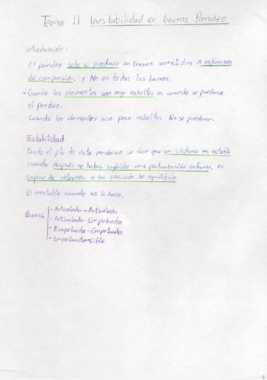 Tema 11 Inestabilidad en barras Pandeo
introducción:
El pandeo solo se produce en barras sometidas a esfuerzos
de compresión, y No en todas las barras.
- Cuando los elementos son muy esbeltos es cuando se produce
el pandeo.
Cuando los elementos son poco esbeltos No se produce.
Estabilidad
Desde el pto de vista mecánico se dice que un sistema es estable
cuando después de haber sufrido una perturbación externa, es
capaz de retornar a su posición de equilibrio.
Es inestable cuando no lo hace.
Barras
- Articulado - Articulado
- Articulado - Empotrada
- Empotrada - Empotrada
- Empotrada - Libre